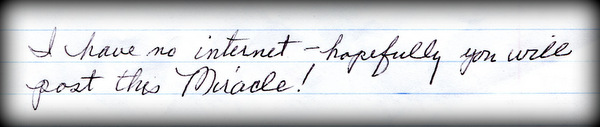 I have no internet - hopefully you will
post this Miracle!